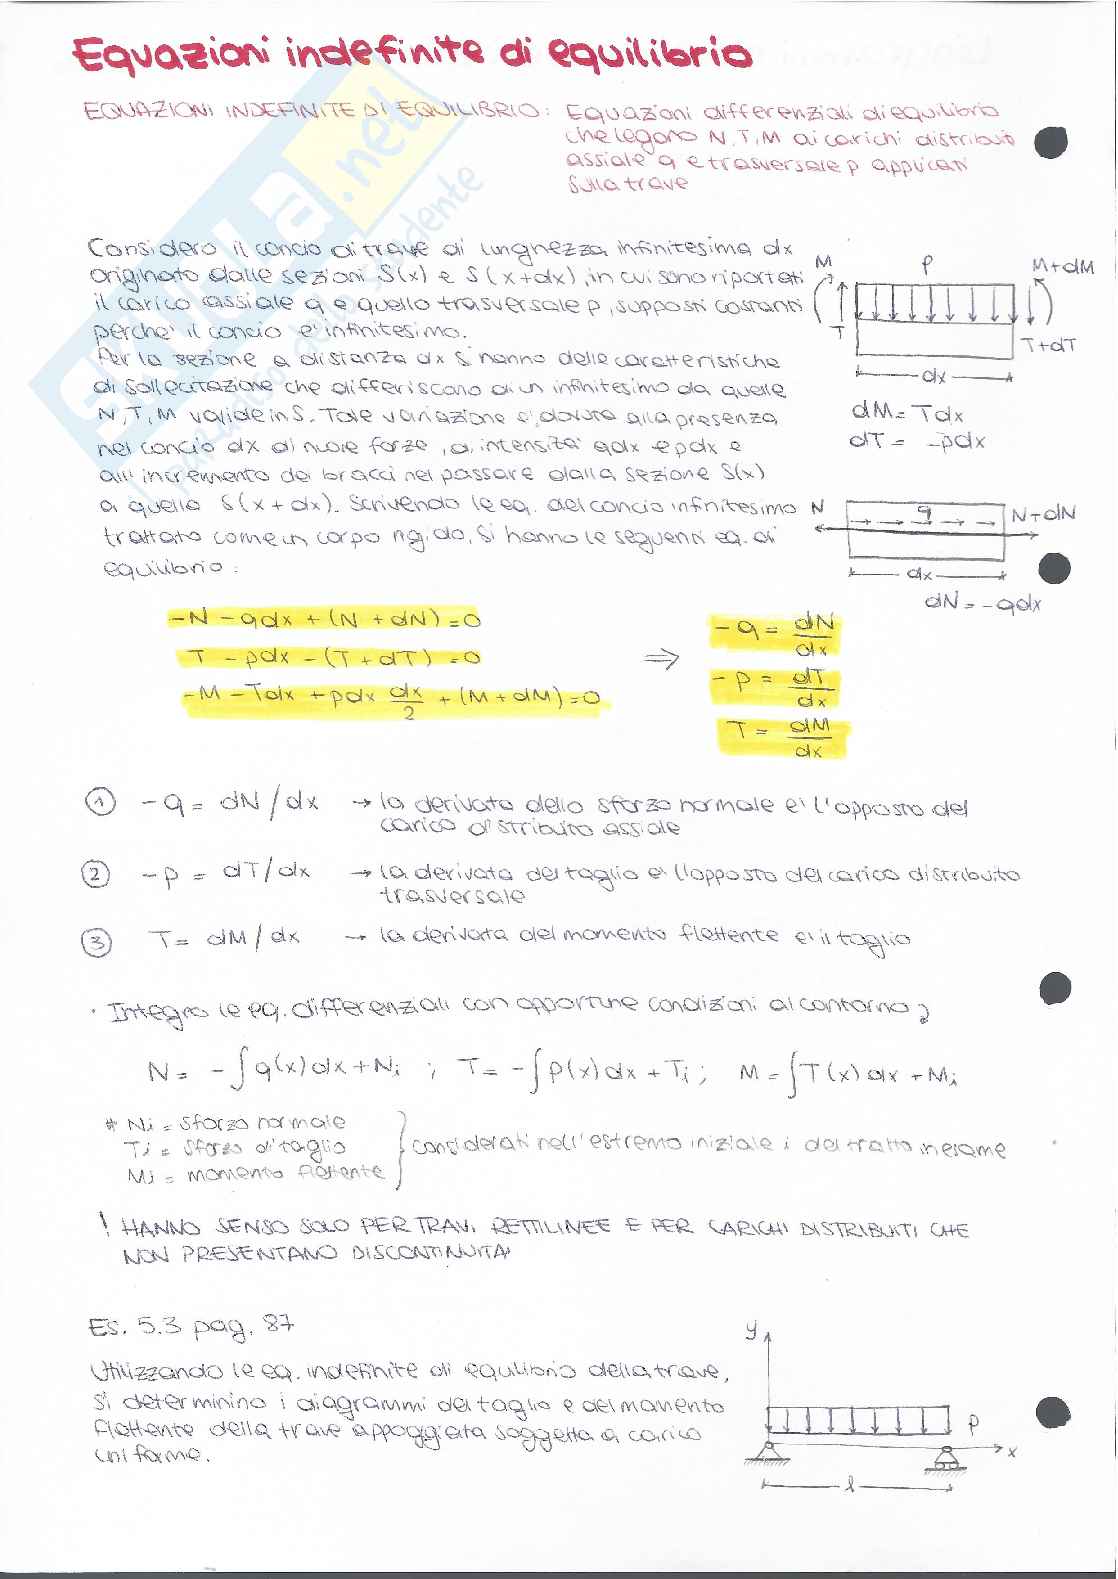 Equazioni indefinite di equilibrio
EQUAZIONI INDEFINITE DI EQUILIBRIO: Equazioni differenziali di equilibrio
che legano N, T, M ai carichi distribuiti
assiale q e trasversale p applicati
sulla trave
Considero il concio di trave di lunghezza infinitesima dx
originato dalle sezioni S(x) e S(x+dx), in cui sono riportati
il carico assiale q e quello trasversale p, supposti costanti
perche' il concio e' infinitesimo.
Per la sezione a distanza dx si hanno delle caratteristiche
di sollecitazione che differiscono di un infinitesimo da quelle
N, T, M valide in S. Tale variazione e' dovuta alla presenza
nel concio dx di nuove forze, di intensita' qdx e pdx e
all'incremento dei bracci nel passare dalla sezione S(x)
a quella S(x+dx). Scrivendo le eq. del concio infinitesimo
trattato come un corpo rigido, si hanno le seguenti eq. di
equilibrio:
M p M+dM
T T+dT
dx
dM = Tdx
dT = -pdx
N q N+dN
dx
dN = -qdx
-N - qdx + (N + dN) = 0
T - pdx - (T + dT) = 0
-M - Tdx + pdx dx/2 + (M + dM) = 0
⇒
-q = dN/dx
-p = dT/dx
T = dM/dx
① -q = dN/dx → la derivata dello sforzo normale e' l'opposto del
carico distributo assiale
② -p = dT/dx → la derivata del taglio e' l'opposto del carico distribuito
trasversale
③ T = dM/dx → la derivata del momento flettente e' il taglio
· Integro le eq. differenziali con opportune condizioni al contorno
N = -∫q(x)dx + Ni ; T = -∫p(x)dx + Ti ; M = ∫T(x)dx + Mi
* Ni = sforzo normale
Ti = sforzo di taglio
Mi = momento flettente
} considerati nell'estremo iniziale i del tratto in esame
! HANNO SENSO SOLO PER TRAVI RETTILINEE E PER CARICHI DISTRIBUITI CHE
NON PRESENTANO DISCONTINUITA'
Es. 5.3 pag. 87
Utilizzando le eq. indefinite di equilibrio della trave,
si determinino i diagrammi del taglio e del momento
flettente della trave appoggiata soggetta a carico
uniforme.
y
p
x
l
skuola.net